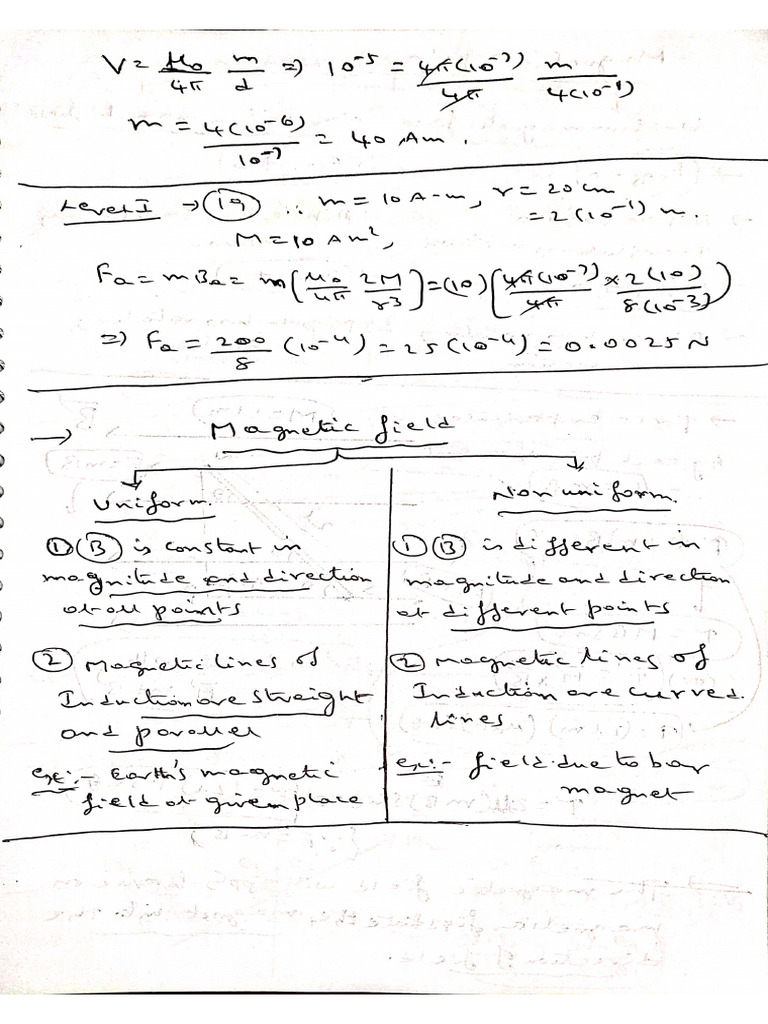 V = μ₀/4π m/d ⇒ 10⁻⁵ = 4π(10⁻⁷)/4π m/4(10⁻¹)
m = 4(10⁻⁶)/10⁻⁷ = 40 Am.
Level I → (19) ∴ m = 10 A-m, r = 20 cm
= 2(10⁻¹) m.
M = 10 Am²,
Fa = mBa = m(μ₀/4π 2M/r³) = (10)(4π(10⁻⁷)/4π × 2(10)/8(10⁻³))
⇒ Fa = 200/8 (10⁻⁴) = 25(10⁻⁴) = 0.0025 N
→ Magnetic field
Uniform.
① (B) is constant in
magnitude and direction
at all points
② Magnetic lines of
Induction are straight
and parallel
ex:- Earth's magnetic
field at given place
Non uniform.
① (B) is different in
magnitude and direction
at different points
② magnetic lines of
Induction are curved.
lines
ex:- field due to bar
magnet